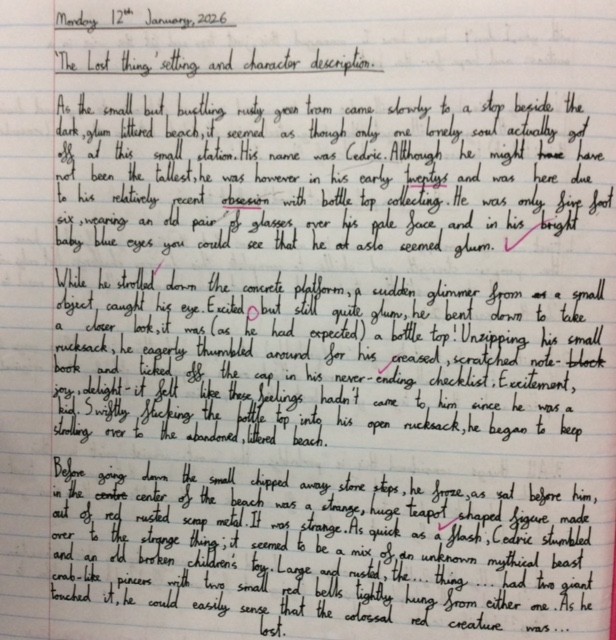 Monday 12th January, 2026
'The Lost thing' setting and character description.
As the small but bustling rusty green tram came slowly to a stop beside the
dark, glum littered beach, it seemed as though only one lonely soul actually got
off at this small station. His name was Cedric. Although he might have have
not been the tallest, he was however in his early twentys and was here due
to his relatively recent obsesion with bottle top collecting. He was only five foot
six, wearing an old pair of glasses over his pale face and in his bright
baby blue eyes you could see that he at aslo seemed glum.
While he strolled down the concrete platform, a sudden glimmer from as a small
object, caught his eye. Excited, but still quite glum, he bent down to take
a closer look, it was (as he had expected) a bottle top! Unzipping his small
rucksack, he eagerly thumbled around for his creased, scratched note- block
book and ticked off the cap in his never-ending checklist. Excitement,
joy, delight-it felt like these feelings hadn't came to him since he was a
kid. Swiftly flicking the bottle top into his open rucksack, he began to keep
strolling over to the abandoned, littered beach.
Before going down the small chipped away stone steps, he froze, as sat before him,
in the centre center of the beach was a strange, huge teapot shaped figure made
out of red rusted scrap metal. It was strange. As quick as a flash, Cedric stumbled
over to the strange thing; it seemed to be a mix of an unknown mythical beast
and an old broken children's toy. Large and rusted, the... thing... had two giant
crab-like pincers with two small red bells tightly hung from either one. As he
touched it, he could easily sense that the colossal red creature was...
lost.